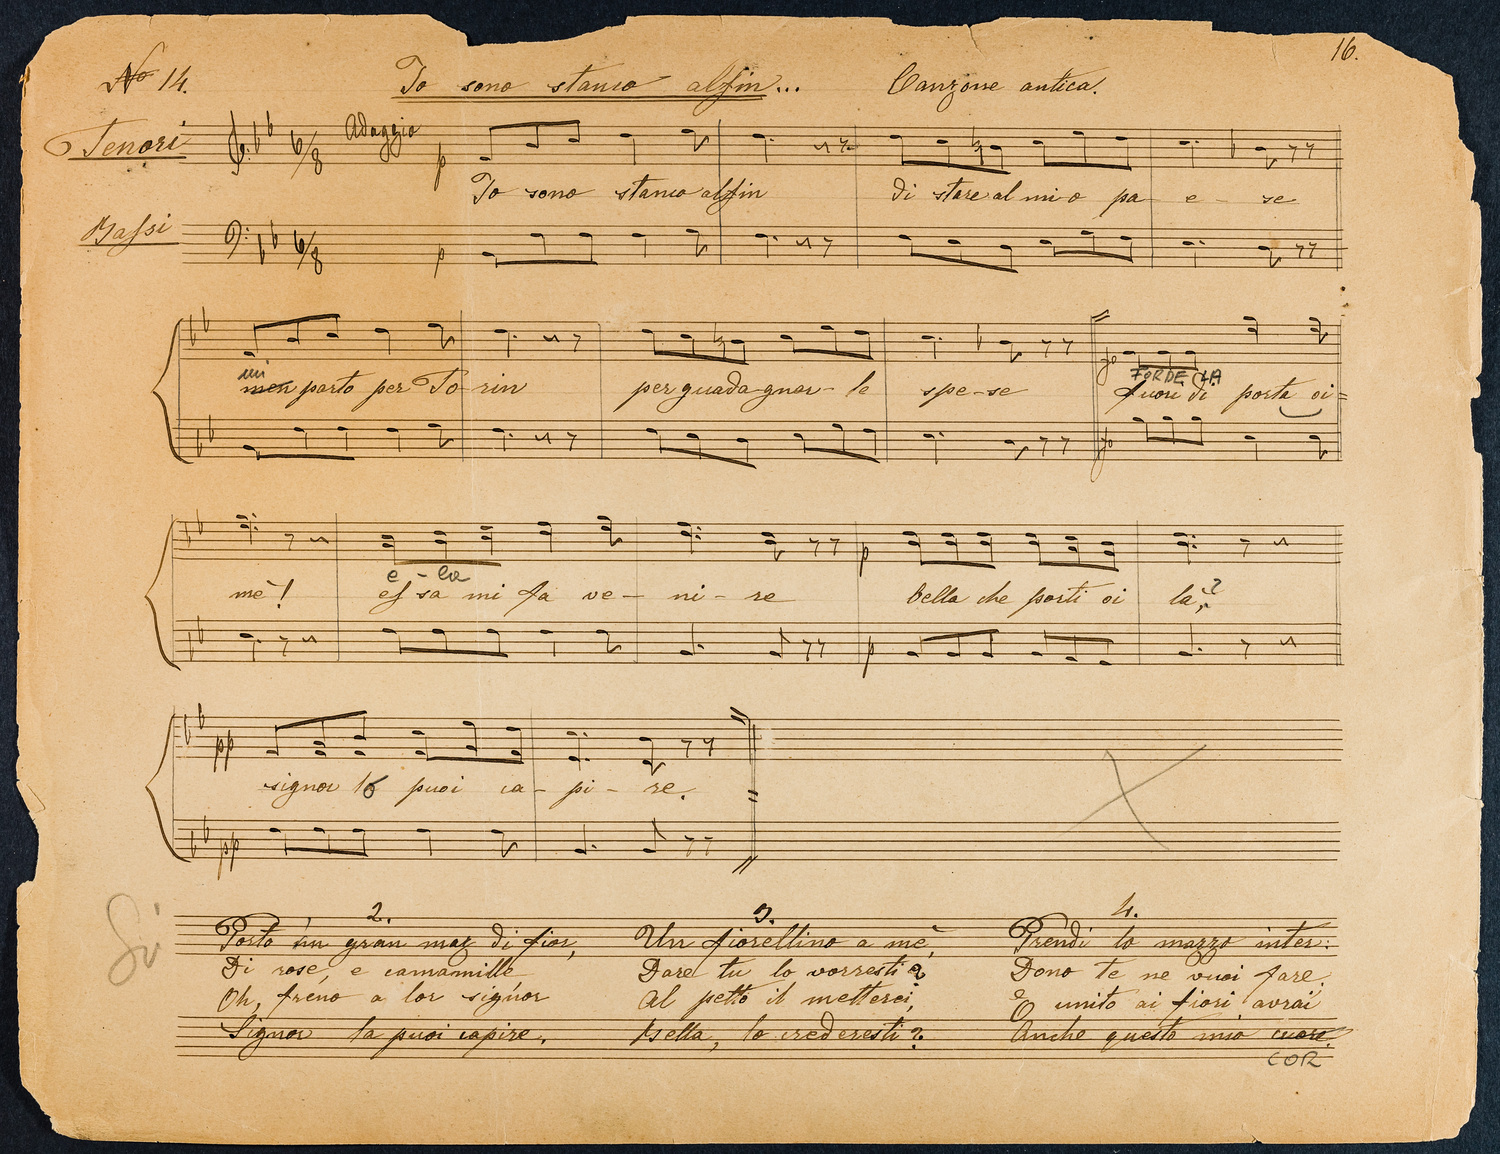 16.
No 14. Io sono stanco alfin... Canzone antica.
Tenori Adaggio p
Io sono stanco alfin di stare al mio pa - e - se
Bassi p
mi
men parto per To-rin per guada-gnar-le spe-se fuori di porta oi=
FORDE LA
e - la
mè! essa mi fa ve - ni - re bella che porti oi la?
p
pp
signor lo puoi ca - pi - re.
pp
Si
2. 3. 4.
Porto un gran maz di fior, Un fiorellino a mè, Prendi lo mazzo inter:
Di rose, e camamille Dare tu lo vorresti? Dono te ne vuoi fare.
Oh, freno a lor signor Al petto il metterei, E unito ai fiori avrai
Signor la puoi capire. Bella, lo crederesti? Anche questo mio cuore.
COR